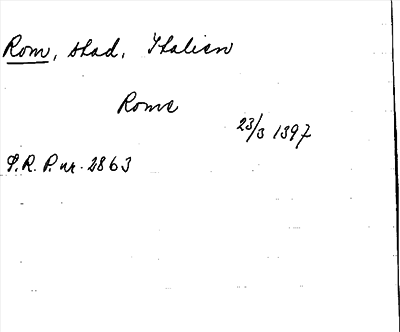 Rom, stad, Italien
Rome
23/3 1397
S.R.P. nr. 2863